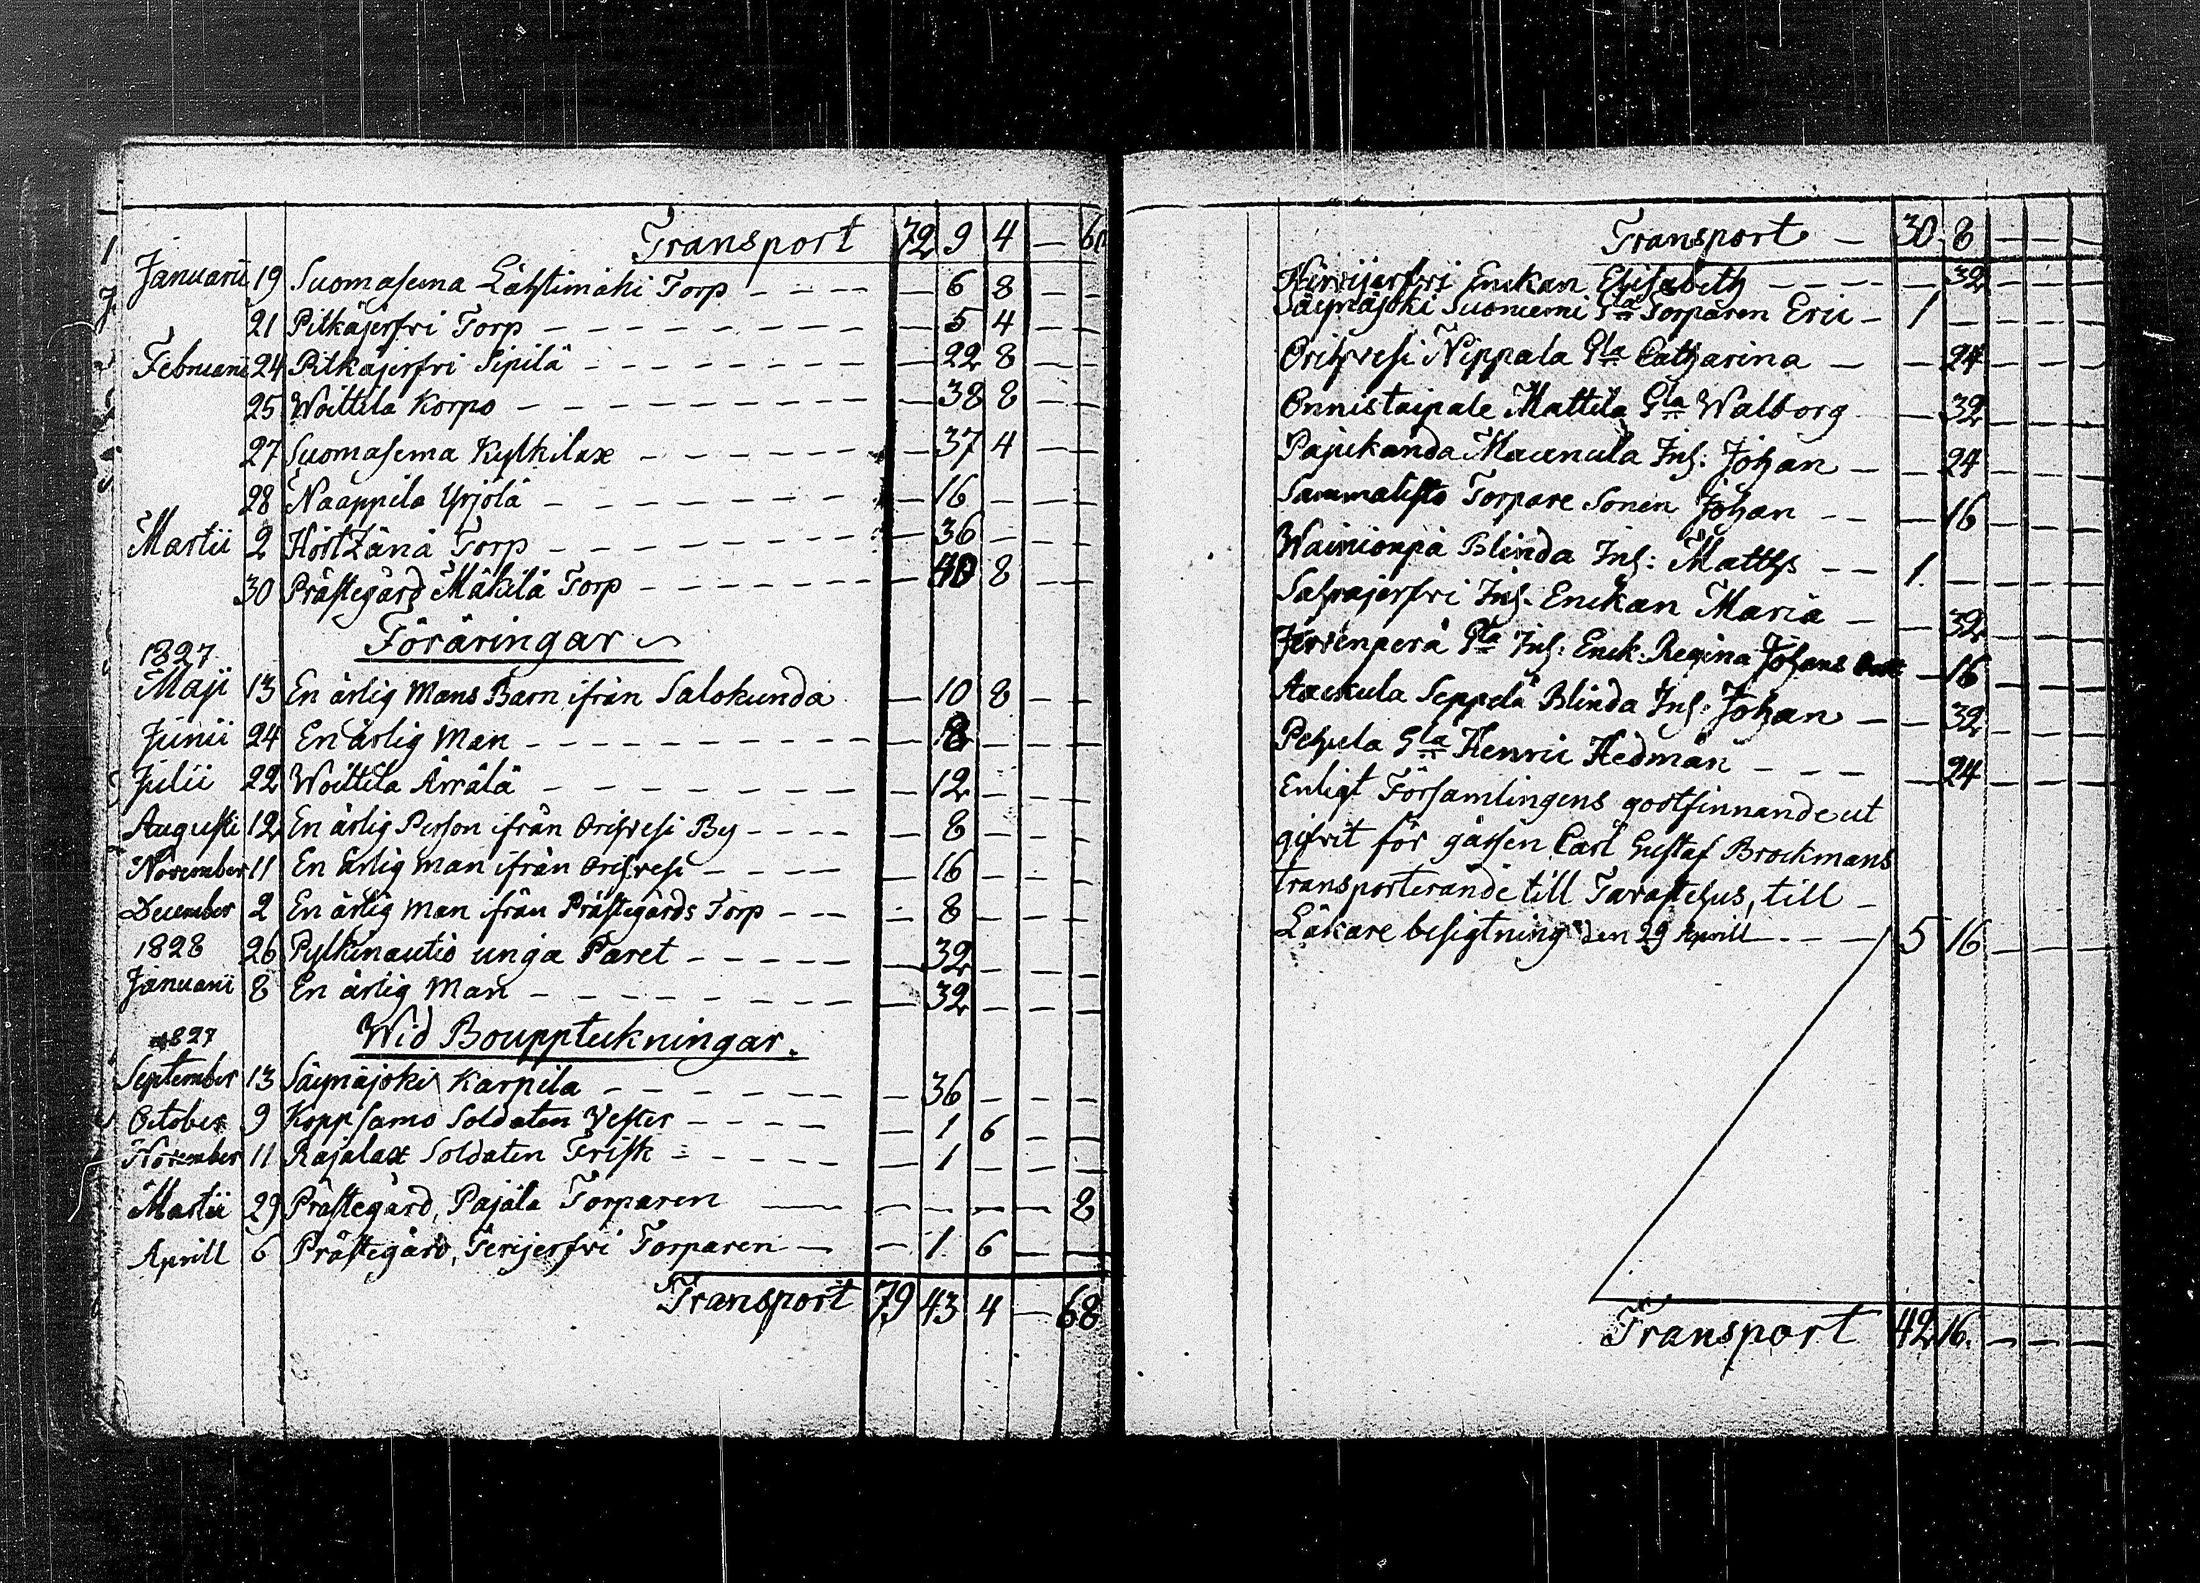 Transport 72 9 4 — 60
Januarii 19 Suomasema Lähtimäki Torp — — — — 6 8 — —
21 Pitkäjerfvi Torp — — — 5 4 — —
Februarii 24 Pitkäjerfvi Sipilä — — — 22 8 — —
25 Woittila Korpo — — — 38 8 — —
27 Suomasema Kylkilax — — — 37 4 — —
28 Naappila Yrjölä — — — 16 — — —
Martii 2 Hörtzänä Torp — — — 36 — — —
30 Prästegård Mäkilä Torp — — — 40 8 — —
Föräringar
1827
Maji 13 En ärlig Mans Barn ifrån Salokunda — 10 8 — —
Junii 24 En ärlig Man — — — 8 — — —
Julii 22 Woittila Ärrälä — — — 12 — — —
Augusti 12 En ärlig Person ifrån Orihvesi By — — — 8 — — —
November 11 En ärlig man ifrån Orihvesi — — — 16 — — —
December 2 En ärlig man ifrån Prästegårds Torp — — — 8 — — —
26 Pylkinautio unga Paret — — — 32 — — —
1828
Januarii 8 En ärlig Man — — — 32 — — —
Wid Bouppteckningar.
1827
September 13 Säynäjoki Karpila — — — 36 — — —
October 9 Koppsamo Soldaten Vester — — — 1 6 — —
November 11 Rajalax Soldaten Frisk — — — 1 — — —
Martii 29 Prästegård, Pajala Torparen — — — — — 8
Aprill 6 Prästegård, Terijerfvi Torparen — — 1 6 — —
Transport 79 43 4 — 68
Transport — 30 8 — — —
Hirvijerfvi Enckan Elisabeth — — — — 32 — — —
Säynäjoki Suoniemi Gla Torparen Eric — 1 — — — —
Orihvesi Nippala Gla Catharina — — 24 — — —
Onnistaipale Mattila Gla Walborg — 32 — — —
Pajukanda Maunula Inh: Johan — — 24 — — —
Sammalisto Torpare Sonen Johan — — — 16 — — —
Wainionpä Blinda Inh: Matths — — 1. — — — —
Sahrajerfvi Inh. Enckan Maria — — 32 — — —
Jervenperä Gla Inh: Enck: Regina Johans — 16 — — —
Auckula Seppelä Blinda Inh: Johan — — 32 — — —
Pehula Gla Henric Hedman — — — — 24 — — —
Enligt Församlingens godtfinnande ut
gifvit för gåssen Carl Gustaf Brockmans
transporterande till Tavastehus, till —
Läkare besigtning den 29 Aprill — — 5 16 — — —
Transport 42 16. — — —